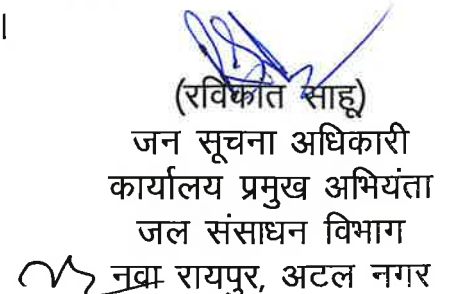 ।
(रविकांत साहू)
जन सूचना अधिकारी
कार्यालय प्रमुख अभियंता
जल संसाधन विभाग
नवा रायपुर, अटल नगर